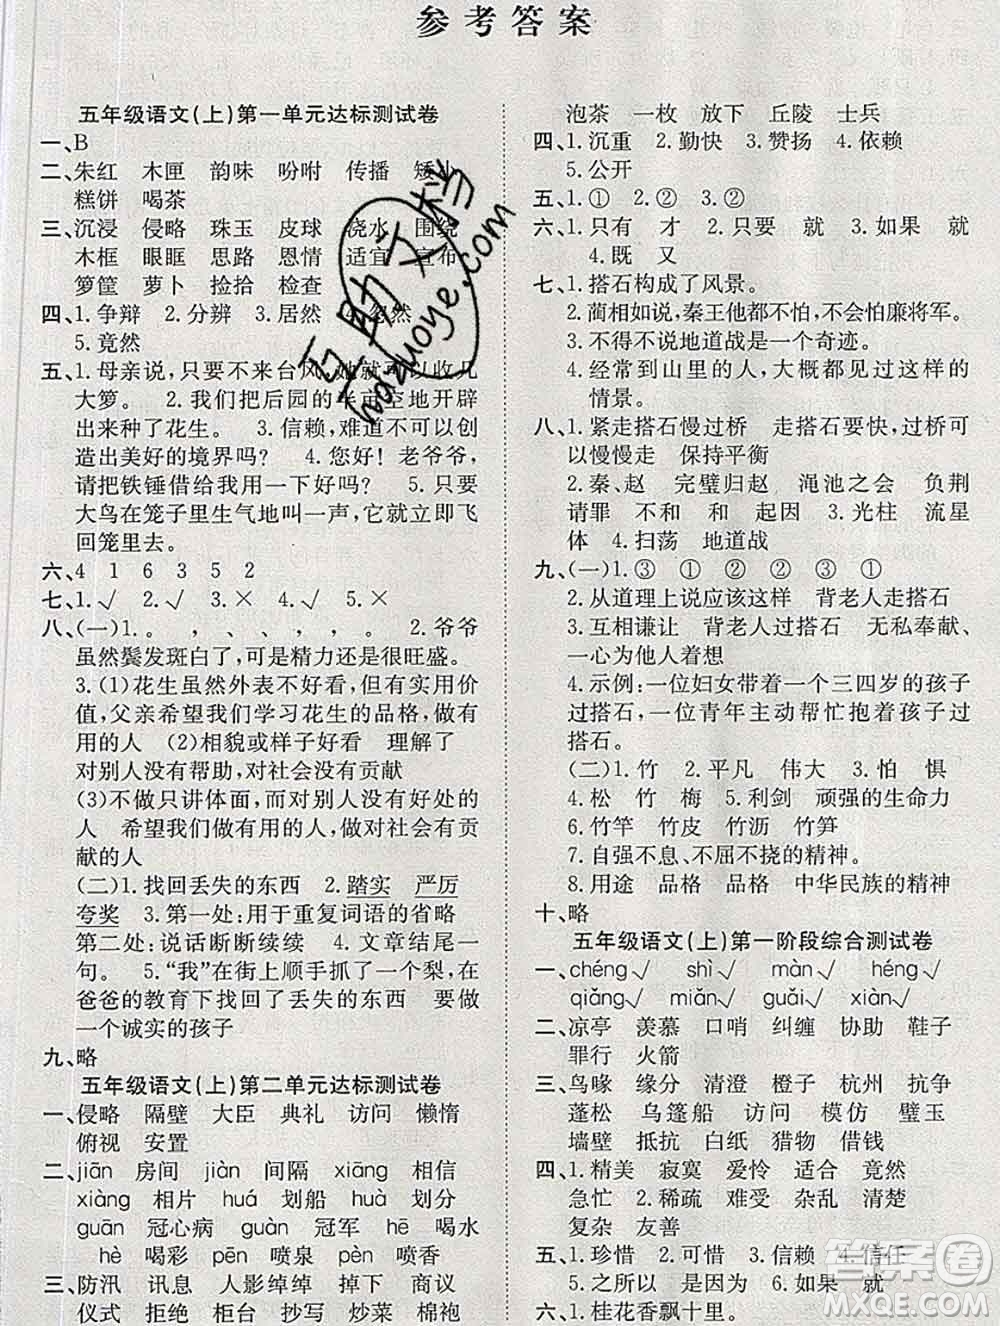 参考答案
五年级语文(上)第一单元达标测试卷
一、B
二、朱红 木匣 韵味 吩咐 传播 矮小
糕饼 喝茶
三、沉浸 侵略 珠玉 皮球 浇水 围绕
木框 眼眶 思路 恩情 适宜 宣布
箩筐 萝卜 捡拾 检查
四、1.争辩 2.分辨 3.居然 4.忽然
5.竟然
五、1.母亲说,只要不来台风,她就可以收几
大箩。 2.我们把后园的半亩空地开辟
出来种了花生。 3.信赖,难道不可以创
造出美好的境界吗? 4.您好!老爷爷,
请把铁锤借给我用一下好吗? 5.只要
大鸟在笼子里生气地叫一声,它就立即飞
回笼里去。
六、4 1 6 3 5 2
七、1.√ 2.√ 3.× 4.√ 5.×
八、(一)1.。 , 、 、 。 2.爷爷
虽然鬓发斑白了,可是精力还是很旺盛。
3.(1)花生虽然外表不好看,但很有实用价
值,父亲希望我们学习花生的品格,做有
用的人 (2)相貌或样子好看 理解了
对别人没有帮助,对社会没有贡献
(3)不做只讲体面,而对别人没有好处的
人 希望我们做有用的人,做对社会有贡
献的人
(二)1.找回丢失的东西 2.踏实 严厉
夸奖 3.第一处:用于重复词语的省略
第二处:说话断断续续 4.文章结尾一
句。 5.“我”在街上顺手抓了一个梨,在
爸爸的教育下找回了丢失的东西 要做
一个诚实的孩子
九、略
五年级语文(上)第二单元达标测试卷
一、侵略 隔壁 大臣 典礼 访问 懒惰
俯视 安置
二、jiān 房间 jiàn 间隔 xiāng 相信
xiàng 相片 huá 划船 huà 划分
guān 冠心病 guàn 冠军 hē 喝水
hè 喝彩 pēn 喷泉 pèn 喷香
三、防汛 讯息 人影绰绰 掉下 商议
仪式 拒绝 柜台 抄写 炒菜 棉袍
泡茶 一枚 放下 丘陵 士兵
四、1.沉重 2.勤快 3.赞扬 4.依赖
5.公开
五、1.① 2.② 3.① 4.②
六、1.只有 才 2.只要 就 3.如果 就
4.既 又
七、1.搭石构成了风景。
2.蔺相如说,秦王他都不怕,不会怕廉将军。
3.不得不说地道战是一个奇迹。
4.经常到山里的人,大概都见过这样的
情景。
八、1.紧走搭石慢过桥 走搭石要快,过桥可
以慢慢走 保持平衡
2.秦、赵 完璧归赵 渑池之会 负荆
请罪 不和 和 起因 3.光柱 流星
体 4.扫荡 地道战
九、(一)1.③ ① ② ③ ①
2.从道理上说应该这样 背老人走搭石
3.互相谦让 背老人过搭石 无私奉献、
一心为他人着想
4.示例:一位妇女带着一个三四岁的孩子
过搭石,一位青年主动帮忙抱着孩子过
搭石。
(二)1.竹 2.平凡 伟大 3.怕 惧
4.松 竹 梅 5.利剑 顽强的生命力
6.竹竿 竹皮 竹沥 竹笋
7.自强不息、不屈不挠的精神。
8.用途 品格 品格 中华民族的精神
十、略
五年级语文(上)第一阶段综合测试卷
一、chéng√ shì√ màn√ héng√
qiǎng√ miǎn√ guāi√ xiàn√
二、凉亭 羡慕 口哨 纠缠 协助 鞋子
罪行 火箭
三、鸟喙 缘分 清澄 橙子 杭州 抗争
蓬松 乌篷船 访问 模仿 璧玉
墙壁 抵抗 白纸 猎物 借钱
四、1.精美 寂寞 爱怜 适合 竟然
急忙 2.稀疏 难受 杂乱 清楚
复杂 友善
五、1.珍惜 2.可惜 3.信赖 4.信任
5.之所以 是因为 6.如果 就
六、1.桂花香飘十里。
互助文档
hazuoye.com
答案圈
MXQE.COM